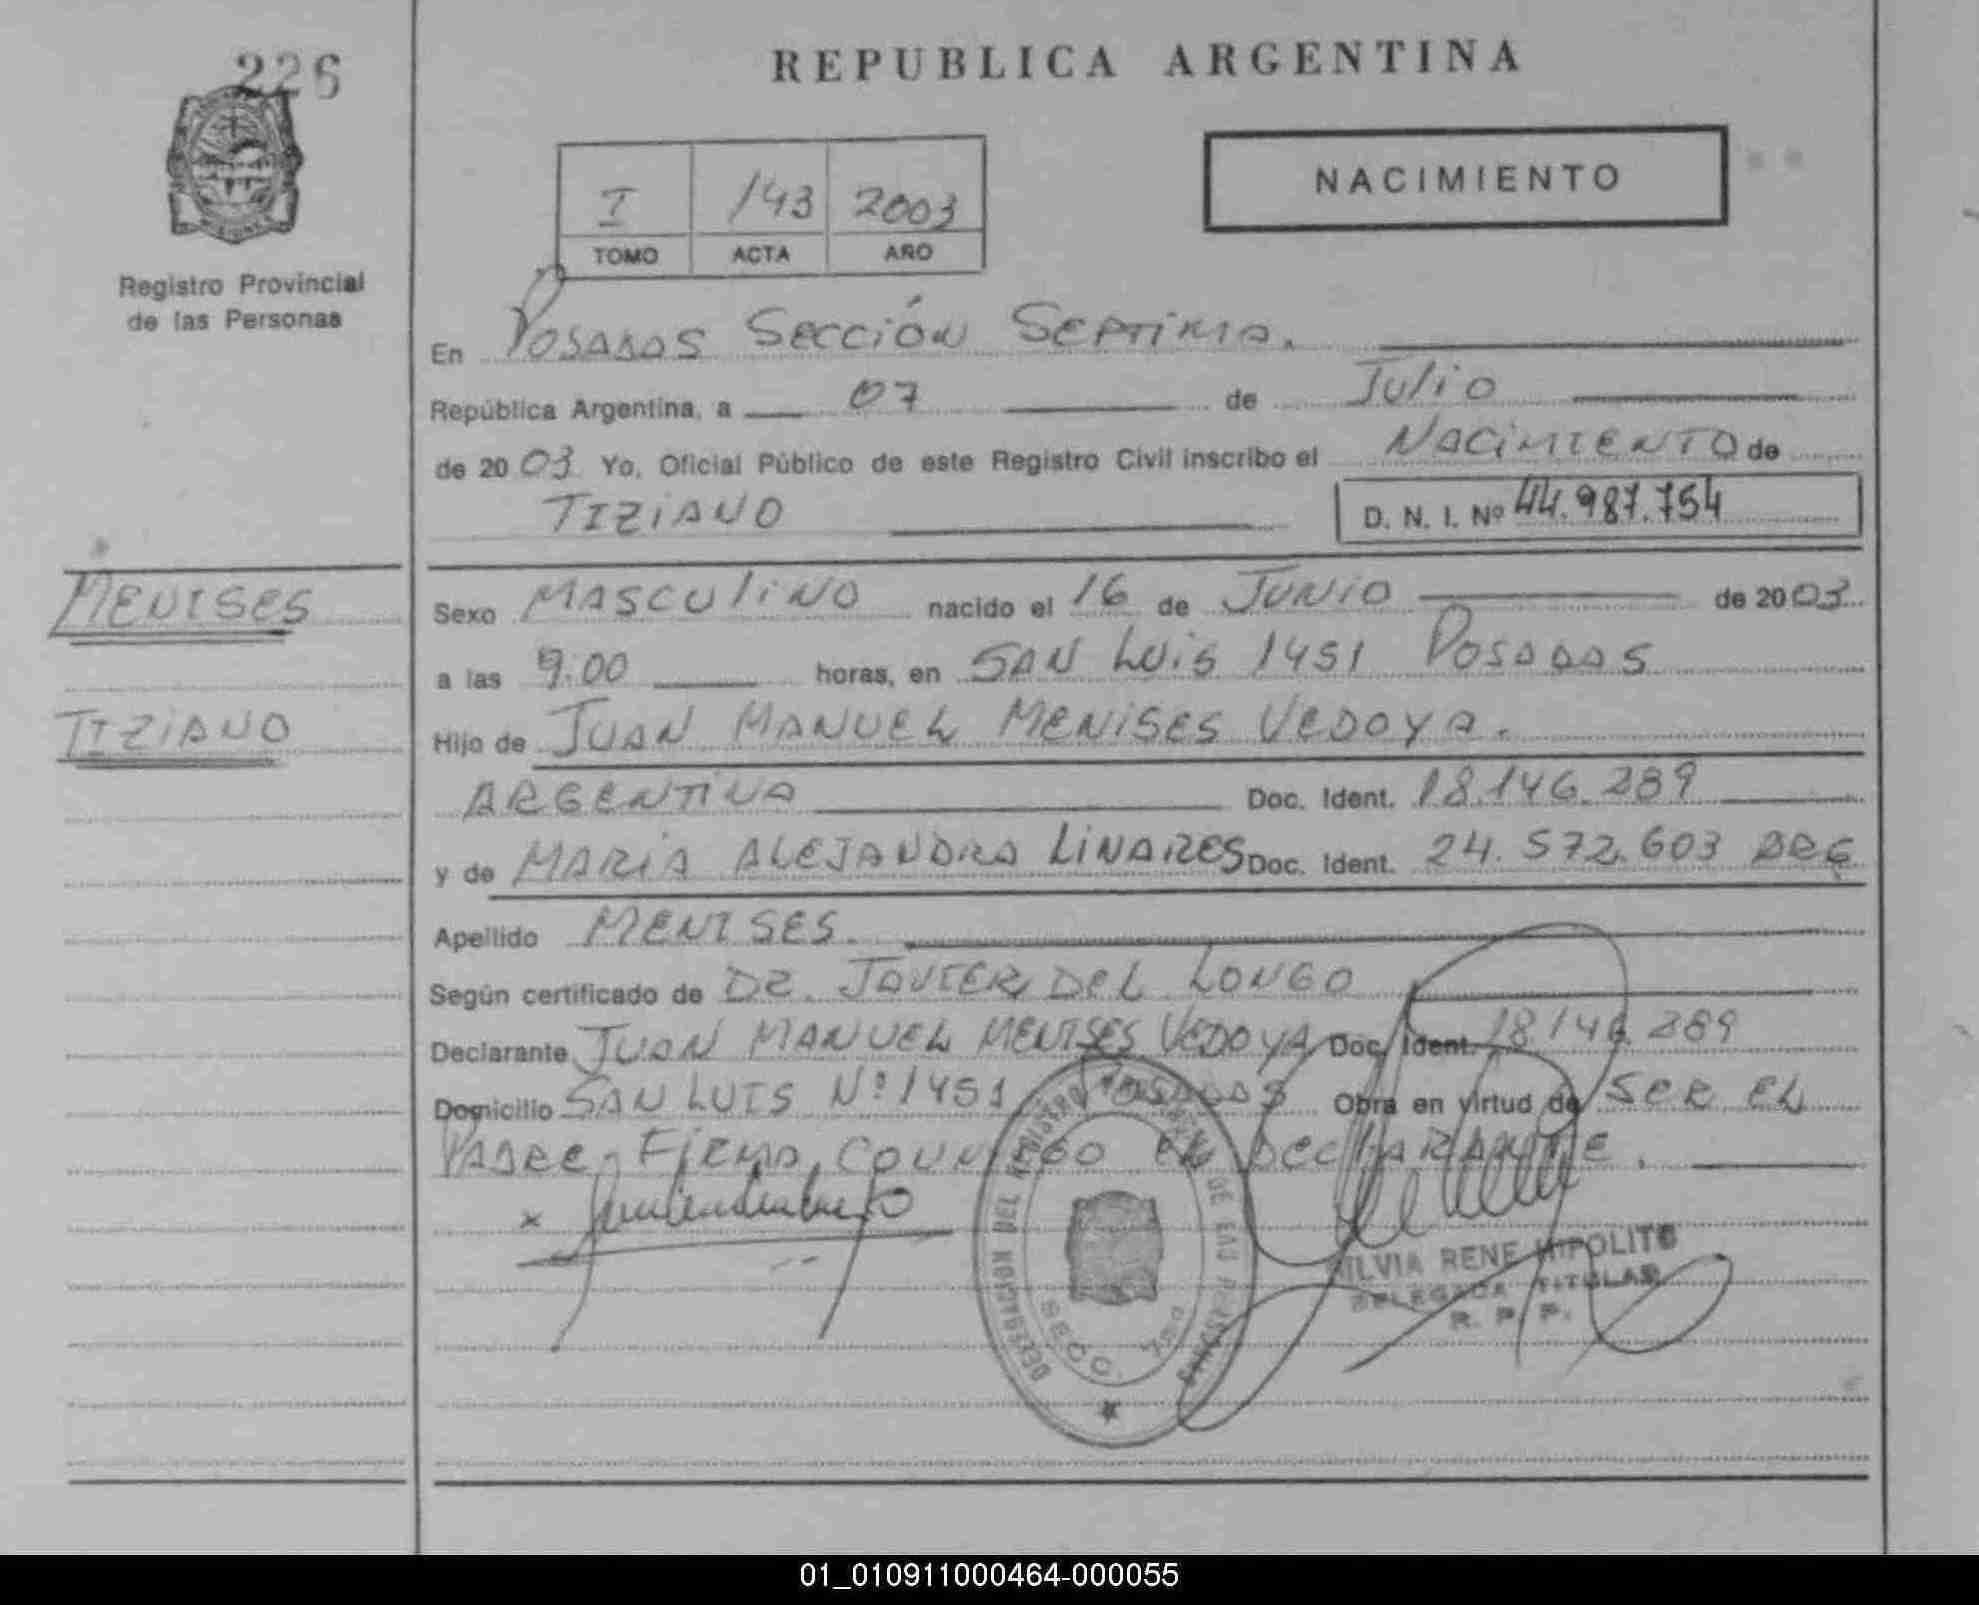 226
REPUBLICA ARGENTINA
NACIMIENTO
I 143 2003
TOMO ACTA AÑO
Registro Provincial
de las Personas
En Posadas Sección Septima.
República Argentina, a 07 de Julio
de 2003 Yo, Oficial Público de este Registro Civil inscribo el Nacimiento de
TIZIANO D. N. I. Nº 44.987.754
MENISES
TIZIANO
Sexo MASCULINO nacido el 16 de JUNIO de 2003
a las 9:00 horas, en SAN LUIS 1451 POSADAS
Hijo de JUAN MANUEL MENISES VEDOYA.
ARGENTINA Doc. Ident. 18.146.289
y de MARIA ALEJANDRA LINARES Doc. Ident. 24.572.603 ARG
Apellido MENISES.
Según certificado de DR. JAVIER DEL LONGO
Declarante JUAN MANUEL MENISES VEDOYA Doc. Ident. 18146289
Domicilio SAN LUIS Nº 1451 POSADAS Obra en virtud de SER EL
PADRE, FIRMA CONMIGO EL DECLARANTE.
x
DELEGACION DEL REGISTRO PROVINCIAL DE LAS PERSONAS
SECC. 7ma
SILVIA RENE HIPOLITO
DELEGADA TITULAR
R. P. P.
01_010911000464-000055